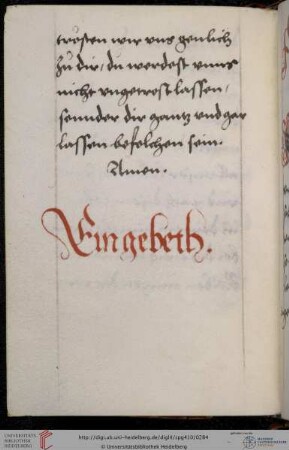 trösten wir vns genlich
zu dir, du werdest vnns
nicht vngetrost lassen,
sonnder dir gantz vnd gar
lassen befolchen sein.
Amen.
Ein gebeth.
UNIVERSITÄTS-
BIBLIOTHEK
HEIDELBERG
http://digi.ub.uni-heidelberg.de/diglit/cpg450/0284
© Universitätsbibliothek Heidelberg